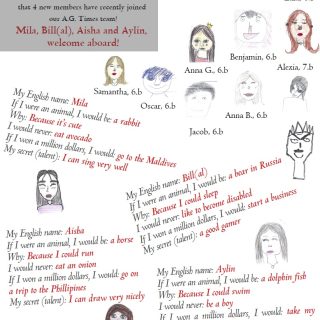 that 4 new members have recently joined
our A.G. Times team!
Mila, Bill(al), Aisha and Aylin,
welcome aboard!
Anna G., 6.b
Benjamin, 6.b
Alexia, 7.b
Samantha, 6.b
Oscar, 6.b
Anna B., 6.b
Jacob, 6.b
My English name: Mila
If I were an animal, I would be: a rabbit
Why: Because it's cute
I would never: eat avocado
If I won a million dollars, I would: go to the Maldives
My secret (talent): I can sing very well
My English name: Bill(al)
If I were an animal, I would be: a bear in Russia
Why: Because I could sleep
I would never: like to become disabled
If I won a million dollars, I would: start a business
My secret (talent): a good gamer
My English name: Aisha
If I were an animal, I would be: a horse
Why: Because I could run
I would never: eat an onion
If I won a million dollars, I would: go on
a trip to the Phillipines
My secret (talent): I can draw very nicely
My English name: Aylin
If I were an animal, I would be: a dolphin fish
Why: Because I could swim
I would never: be a boy
If I won a million dollars, I would: take my